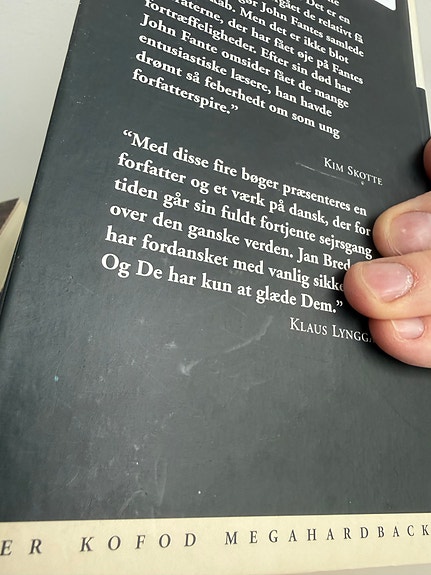 gået de relativt få
gør John Fantes samlede
aterne, der har fået øje på Fantes
fortræffeligheder. Efter sin død har
John Fante omsider fået de mange
entusiastiske læsere, han havde
drømt så feberhedt om som ung
forfatterspire.”
KIM SKOTTE
“Med disse fire bøger præsenteres en
forfatter og et værk på dansk, der for
tiden går sin fuldt fortjente sejrsgang
over den ganske verden. Jan Bred
har fordansket med vanlig sikke
Og De har kun at glæde Dem.”
KLAUS LYNGG
ER KOFOD MEGAHARDBACK